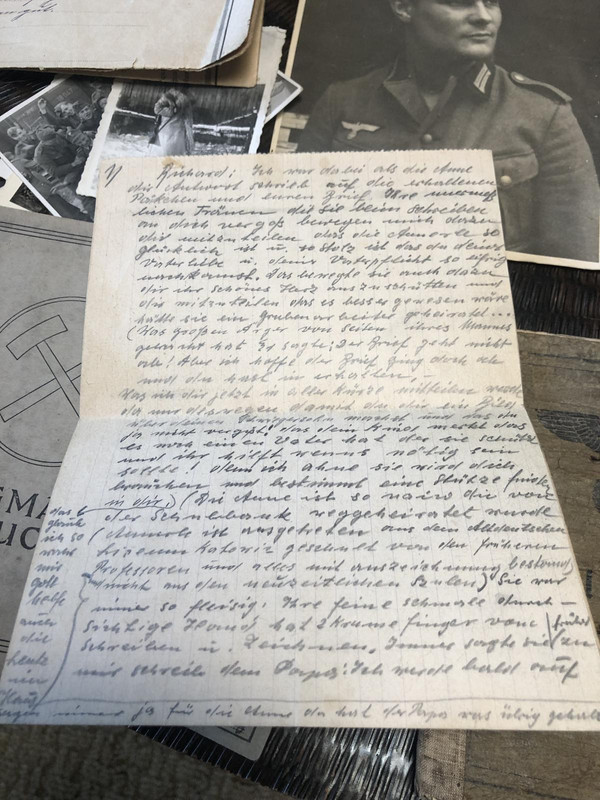 1/ Richard: Ich war dabei als die Anne
die Antwort schrieb auf die erhaltenen
Päckchen und euren Brief Ihre
lichen Tränen die sie beim schreiben
an dich vergoß bewegen mich dazu
dir mitzuteilen das die Annerle so
glücklich ist u. so stolz ist das du deine
Vaterliebe u. deine Vaterpflicht so eifrig
nachkommst. Das bewegte sie auch dazu
dir ihr schönes Herz auszuschütten und
dir mitzuteilen das es besser gewesen wäre
hätte sie ein Grubenarbeiter geheiratet...
(Was großen Ärger von seiten ihres Mannes
gebracht hat Er sagte: Der Brief geht nicht
ab! Aber ich hoffe der Brief ging doch ab
und du hast in erhalten. -
Was ich dir jetzt in aller Kürze mitteilen werde
da nur deswegen damit du dir ein Bild
über deinen machst und das du
ja nicht vergißt das dein Kind merkt das
es noch einen Vater hat der sie schützt
und ihr hilft wenns nötig sein
sollte! denn ich ahne sie wird dich
brauchen und bestimmt eine Stütze finden
in dir.) (Die Anne ist so naiv die von
der Schulbank weggeheiratet wurde
(Annerle ist ausgetreten aus dem Altdeutschen
Lizeum Katowiz geschult von den früheren
Professoren und alles mit auszeichnung bestand
(nicht aus den neuzeitlichen Sculen) Sie war
immer so fleisig! Ihre feine schmale durch-
sichtige Hand hat 2 Krume finger vom (früher
schreiben u. Zeichnen. Immer sagte sie zu
mir schreib dem Papa: Ich werde bald auf
das
ich so
mir
gott
helfe
auch
die
heute
im
Haus
immer ja für die Anne da hat der Papa was übrig